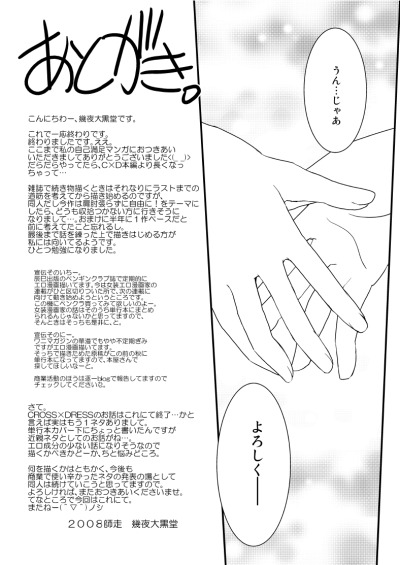 あとがき。
こんにちわー、幾夜大黒堂です。
これで一応終わりです。
終わりましたです。ええ。
ここまで私の自己満足マンガにおつきあい
いただきましてありがとうございましたm(_ _)m
だらだらやってたら、C×D本編より長くなっ
ちゃって…
雑誌で続き物描くときはそれなりにラストまでの
道筋を考えてから描き始めるのですが、
同人だし今作は肩肘張らずに自由に!をテーマに
したら、どうも収拾つかない方に行きそうに
なりまして…。おまけに半年に1作ペースだと
前に考えてたこと忘れるし。
最後まで話を練った上で描きはじめる方が
私には向いてるようです。
ひとつ勉強になりました。
宣伝そのいちー。
辰巳出版のペンギンクラブ誌で定期的に
エロ漫画描いてます。今は女装エロ漫画家の
連載がひと区切りついた所で、次の連載に
向けて動き始めようというところです。
この機にペンクラ買ってみて欲しいのよー。
女装漫画家の話はそのうち単行本にまとめ
られるんじゃないかと思ってますので、
そんときはそっちも是非に、と。
宣伝そのにー。
ワニマガジンの華漫でもやや不定期ぎみ
ですがエロ漫画描いてます。
そっちで描きためた原稿がこの前の秋に
単行本になってますので、本屋さんで
探してほしいなーと。
商業活動のほうは逐一blogで報告してますので
チェックしてくださいな。
さて。
CROSS×DRESSのお話はこれにて終了…かと
言えば実はもう1ネタありまして、
単行本カバー下にちょっと書いたんですが
近親ネタとしてのお話がね…。
エロ成分の少ない話になりそうなので
描くかべきかどーか、ちと悩みどころ。
何を描くかはともかく、今後も
商業で使い辛かったネタの発表の場として
同人は続けていこうと思ってますので、
よろしければ、またおつきあいくださいませ。
てなところで今回はこれにて。
またねー(^▽^)ノシ
2008師走 幾夜大黒堂
うん…じゃあ
よろしく──